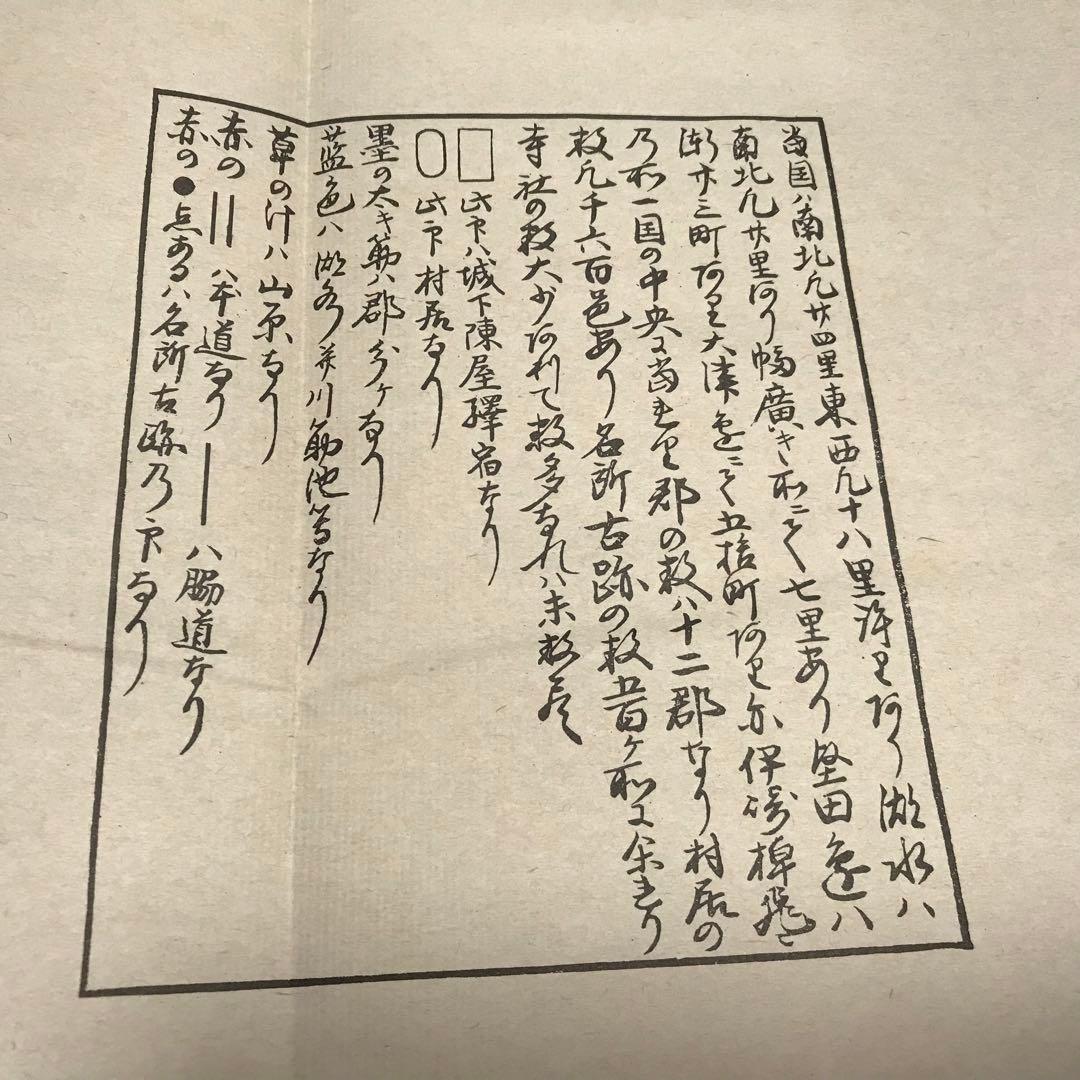 当国ハ南北凡廿四里東西凡十八里許里阿り湖水ハ
南北凡廿里阿り幅廣き所ニて七里あり堅田邊ハ
漸廿三町阿里大津邊ニて五拾町阿里尓伊崎棹飛ニ
乃所一国の中央に当里郡の数ハ十二郡なり村居の
数凡千六百邑あり名所古跡の数五百ヶ所に余れり
寺社の数大少阿利て数多なれハ未数尽
□ 此印ハ城下陳屋驛宿なり
○ 此印村居なり
墨の太き筋ハ郡分ヶなり
藍色ハ湖水并川筋池等なり
草の汁ハ山原なり
赤の ||ハ本道なり |ハ脇道なり
赤の●点あるハ名所古跡乃印なり